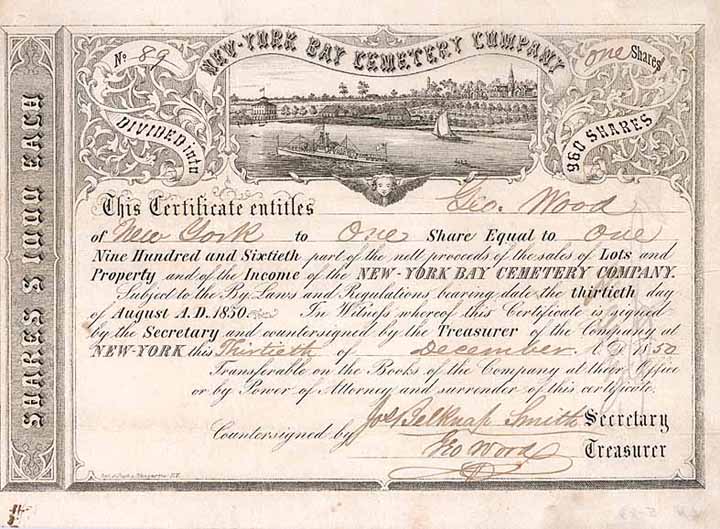 No. 89
NEW-YORK BAY CEMETERY COMPANY
One Shares
DIVIDED into
960 SHARES
SHARES $ 1000 EACH
This Certificate entitles Geo. Wood
of New York to One Share Equal to One
Nine Hundred and Sixtieth part of the nett proceeds of the sales of Lots and
Property and of the Income of the NEW-YORK BAY CEMETERY COMPANY.
Subject to the By Laws and Regulations bearing date the thirtieth day
of August A.D. 1850. In Witness whereof this Certificate is signed
by the Secretary and countersigned by the Treasurer of the Company at
NEW-YORK this Thirtieth of December A D 1850
Transferable on the Books of the Company at their Office
or by Power of Attorney and surrender of this certificate.
Jos Belknap Smith Secretary
Countersigned by Geo Wood Treasurer